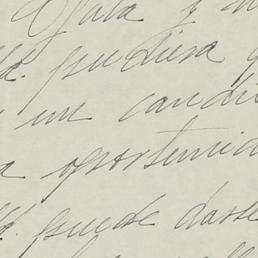 Ojala y
Vd. pudiera
un candi
a oportunid
Vd. puede darse